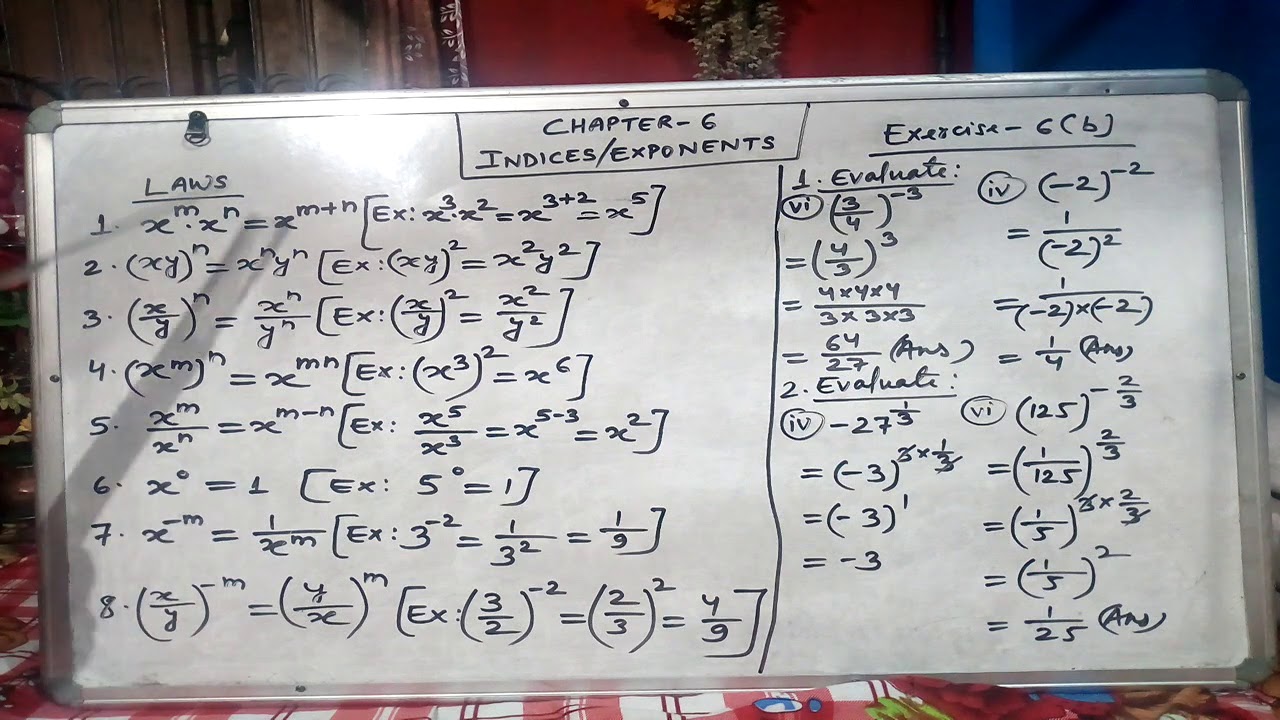 CHAPTER-6
INDICES/EXPONENTS
LAWS
1. x^m · x^n = x^(m+n) [Ex: x^3 · x^2 = x^(3+2) = x^5]
2. (xy)^n = x^n y^n [Ex: (xy)^2 = x^2 y^2]
3. (x/y)^n = x^n/y^n [Ex: (x/y)^2 = x^2/y^2]
4. (x^m)^n = x^(mn) [Ex: (x^3)^2 = x^6]
5. x^m/x^n = x^(m-n) [Ex: x^5/x^3 = x^(5-3) = x^2]
6. x^0 = 1 [Ex: 5^0 = 1]
7. x^(-m) = 1/x^m [Ex: 3^(-2) = 1/3^2 = 1/9]
8. (x/y)^(-m) = (y/x)^m [Ex: (3/2)^(-2) = (2/3)^2 = 4/9]
Exercise - 6(b)
1. Evaluate:
(vi) (3/4)^(-3)
= (4/3)^3
= 4×4×4/3×3×3
= 64/27 (Ans)
(iv) (-2)^(-2)
= 1/(-2)^2
= 1/(-2)×(-2)
= 1/4 (Ans)
2. Evaluate:
(iv) -27^(1/3)
= (-3)^(3×1/3)
= (-3)^1
= -3
(vi) (125)^(-2/3)
= (1/125)^(2/3)
= (1/5)^(3×2/3)
= (1/5)^2
= 1/25 (Ans)